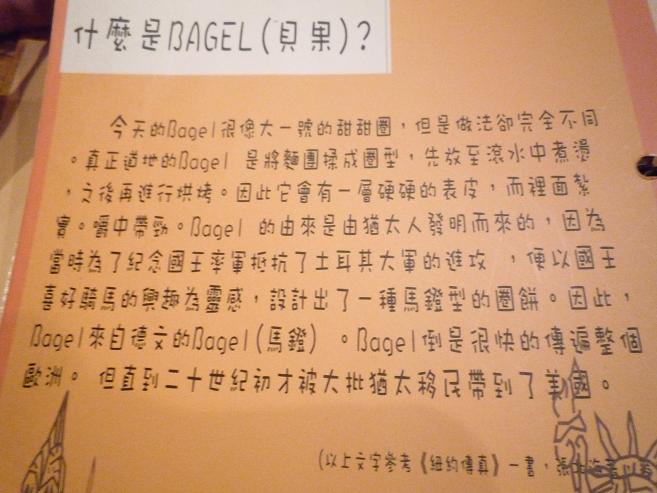 什麼是BAGEL(貝果)?
今天的Bagel很像大一號的甜甜圈，但是做法卻完全不同
。真正道地的Bagel 是將麵團揉成圈型，先放至滾水中煮燙
，之後再進行烘烤。因此它會有一層硬硬的表皮，而裡面紮
實。嚼中帶勁。Bagel 的由來是由猶太人發明而來的，因為
當時為了紀念國王率軍抵抗了土耳其大軍的進攻 ，便以國王
喜好騎馬的興趣為靈感，設計出了一種馬鐙型的圈餅。因此，
Bagel來自德文的Bagel(馬鐙) 。Bagel倒是很快的傳遍整個
歐洲。 但直到二十世紀初才被大批猶太移民帶到了美國。
(以上文字參考《紐約傳真》一書，張北海著